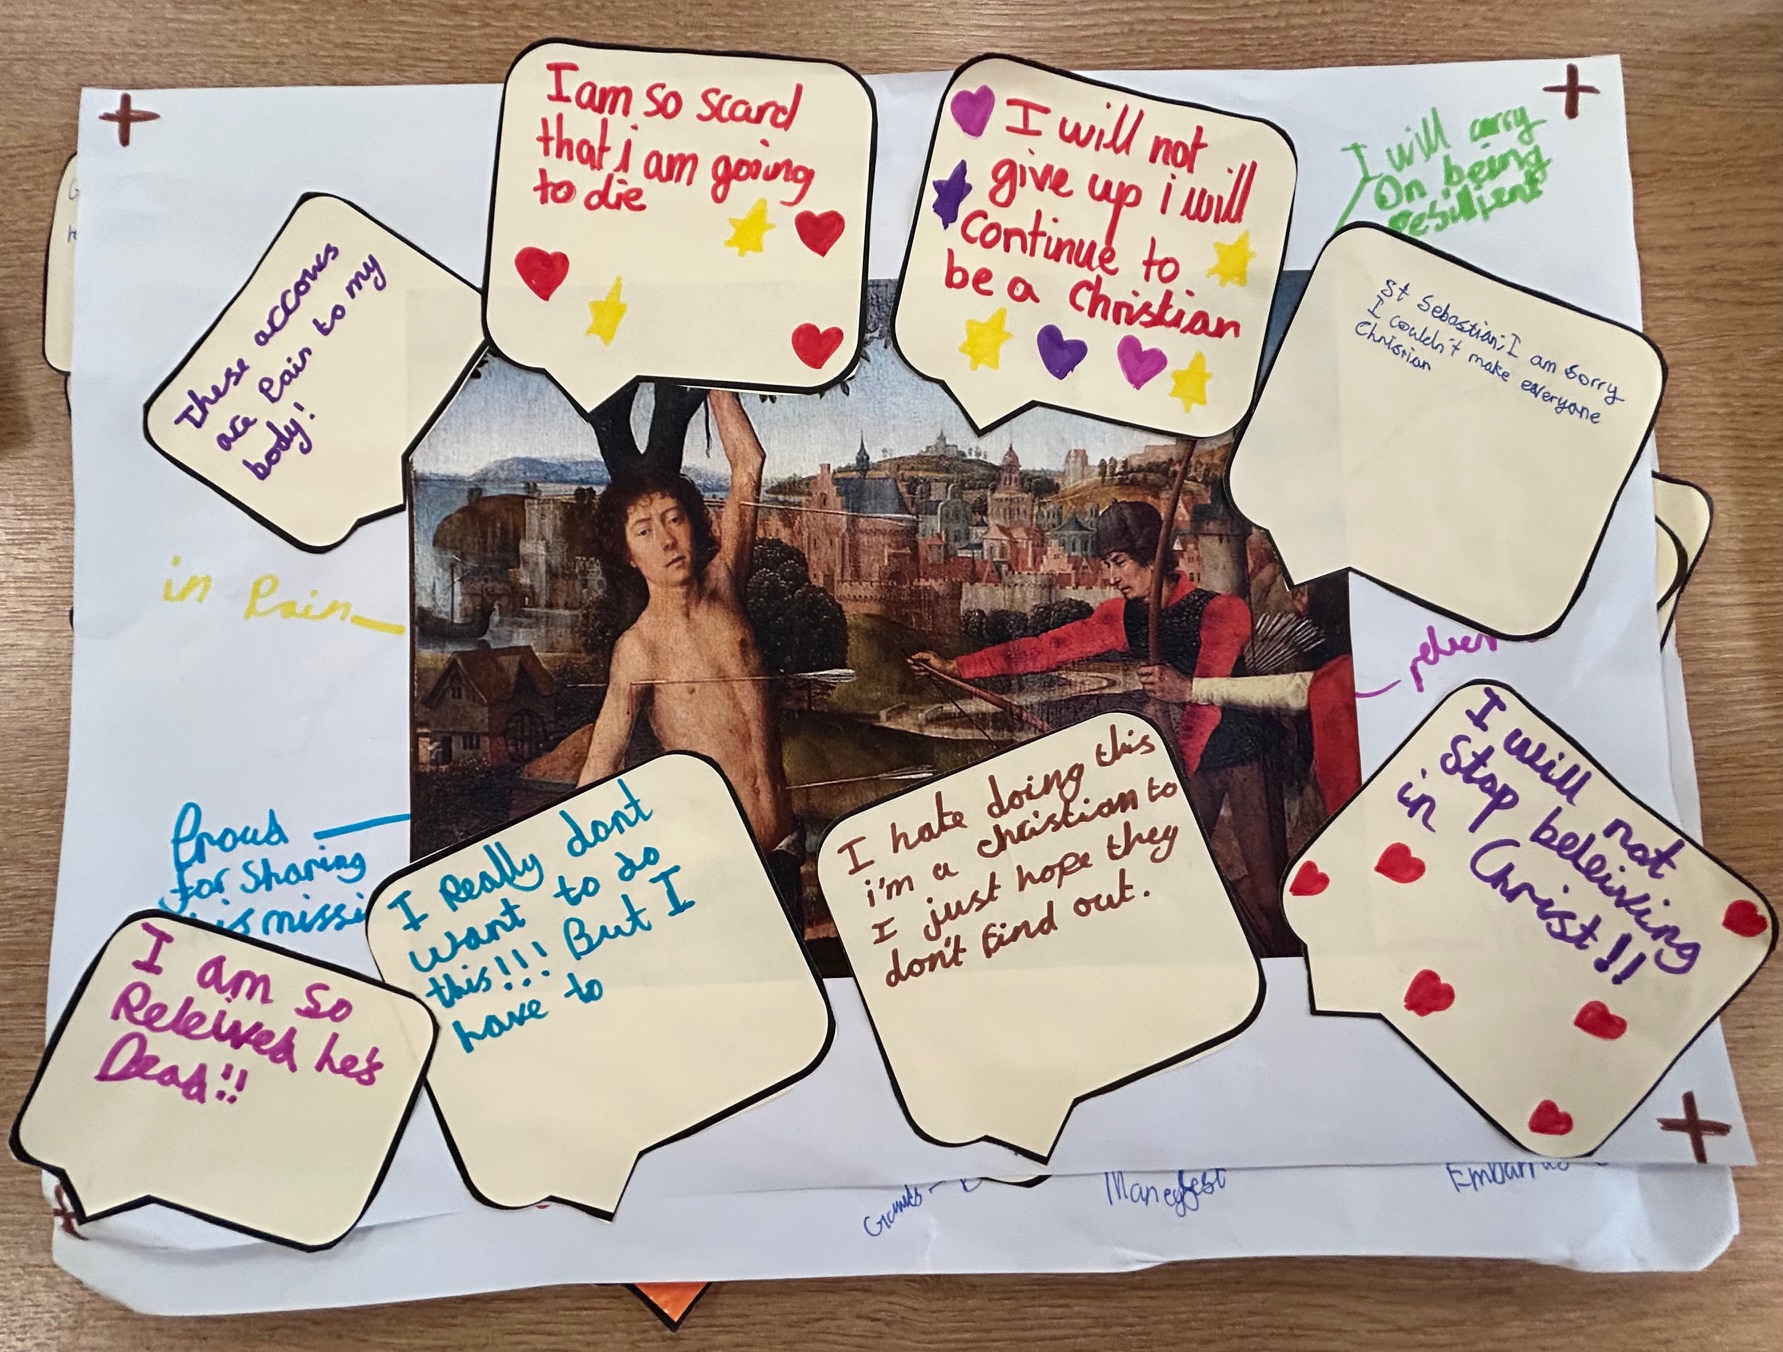 I am so scard
that i am going
to die
I will not
give up i will
continue to
be a Christian
I will carry
On being
resilient
These arrows
are Pain to my
body!
St Sebastian; I am sorry
I couldn't make everyone
Christian
in Pain
Proud
for sharing
I Really dont
want to do
this!!! But I
have to
I hate doing this
i'm a christian to
I just hope they
don't find out.
I will not
Stop beleiving
in Christ!!
I am so
Releived he's
Dead!!